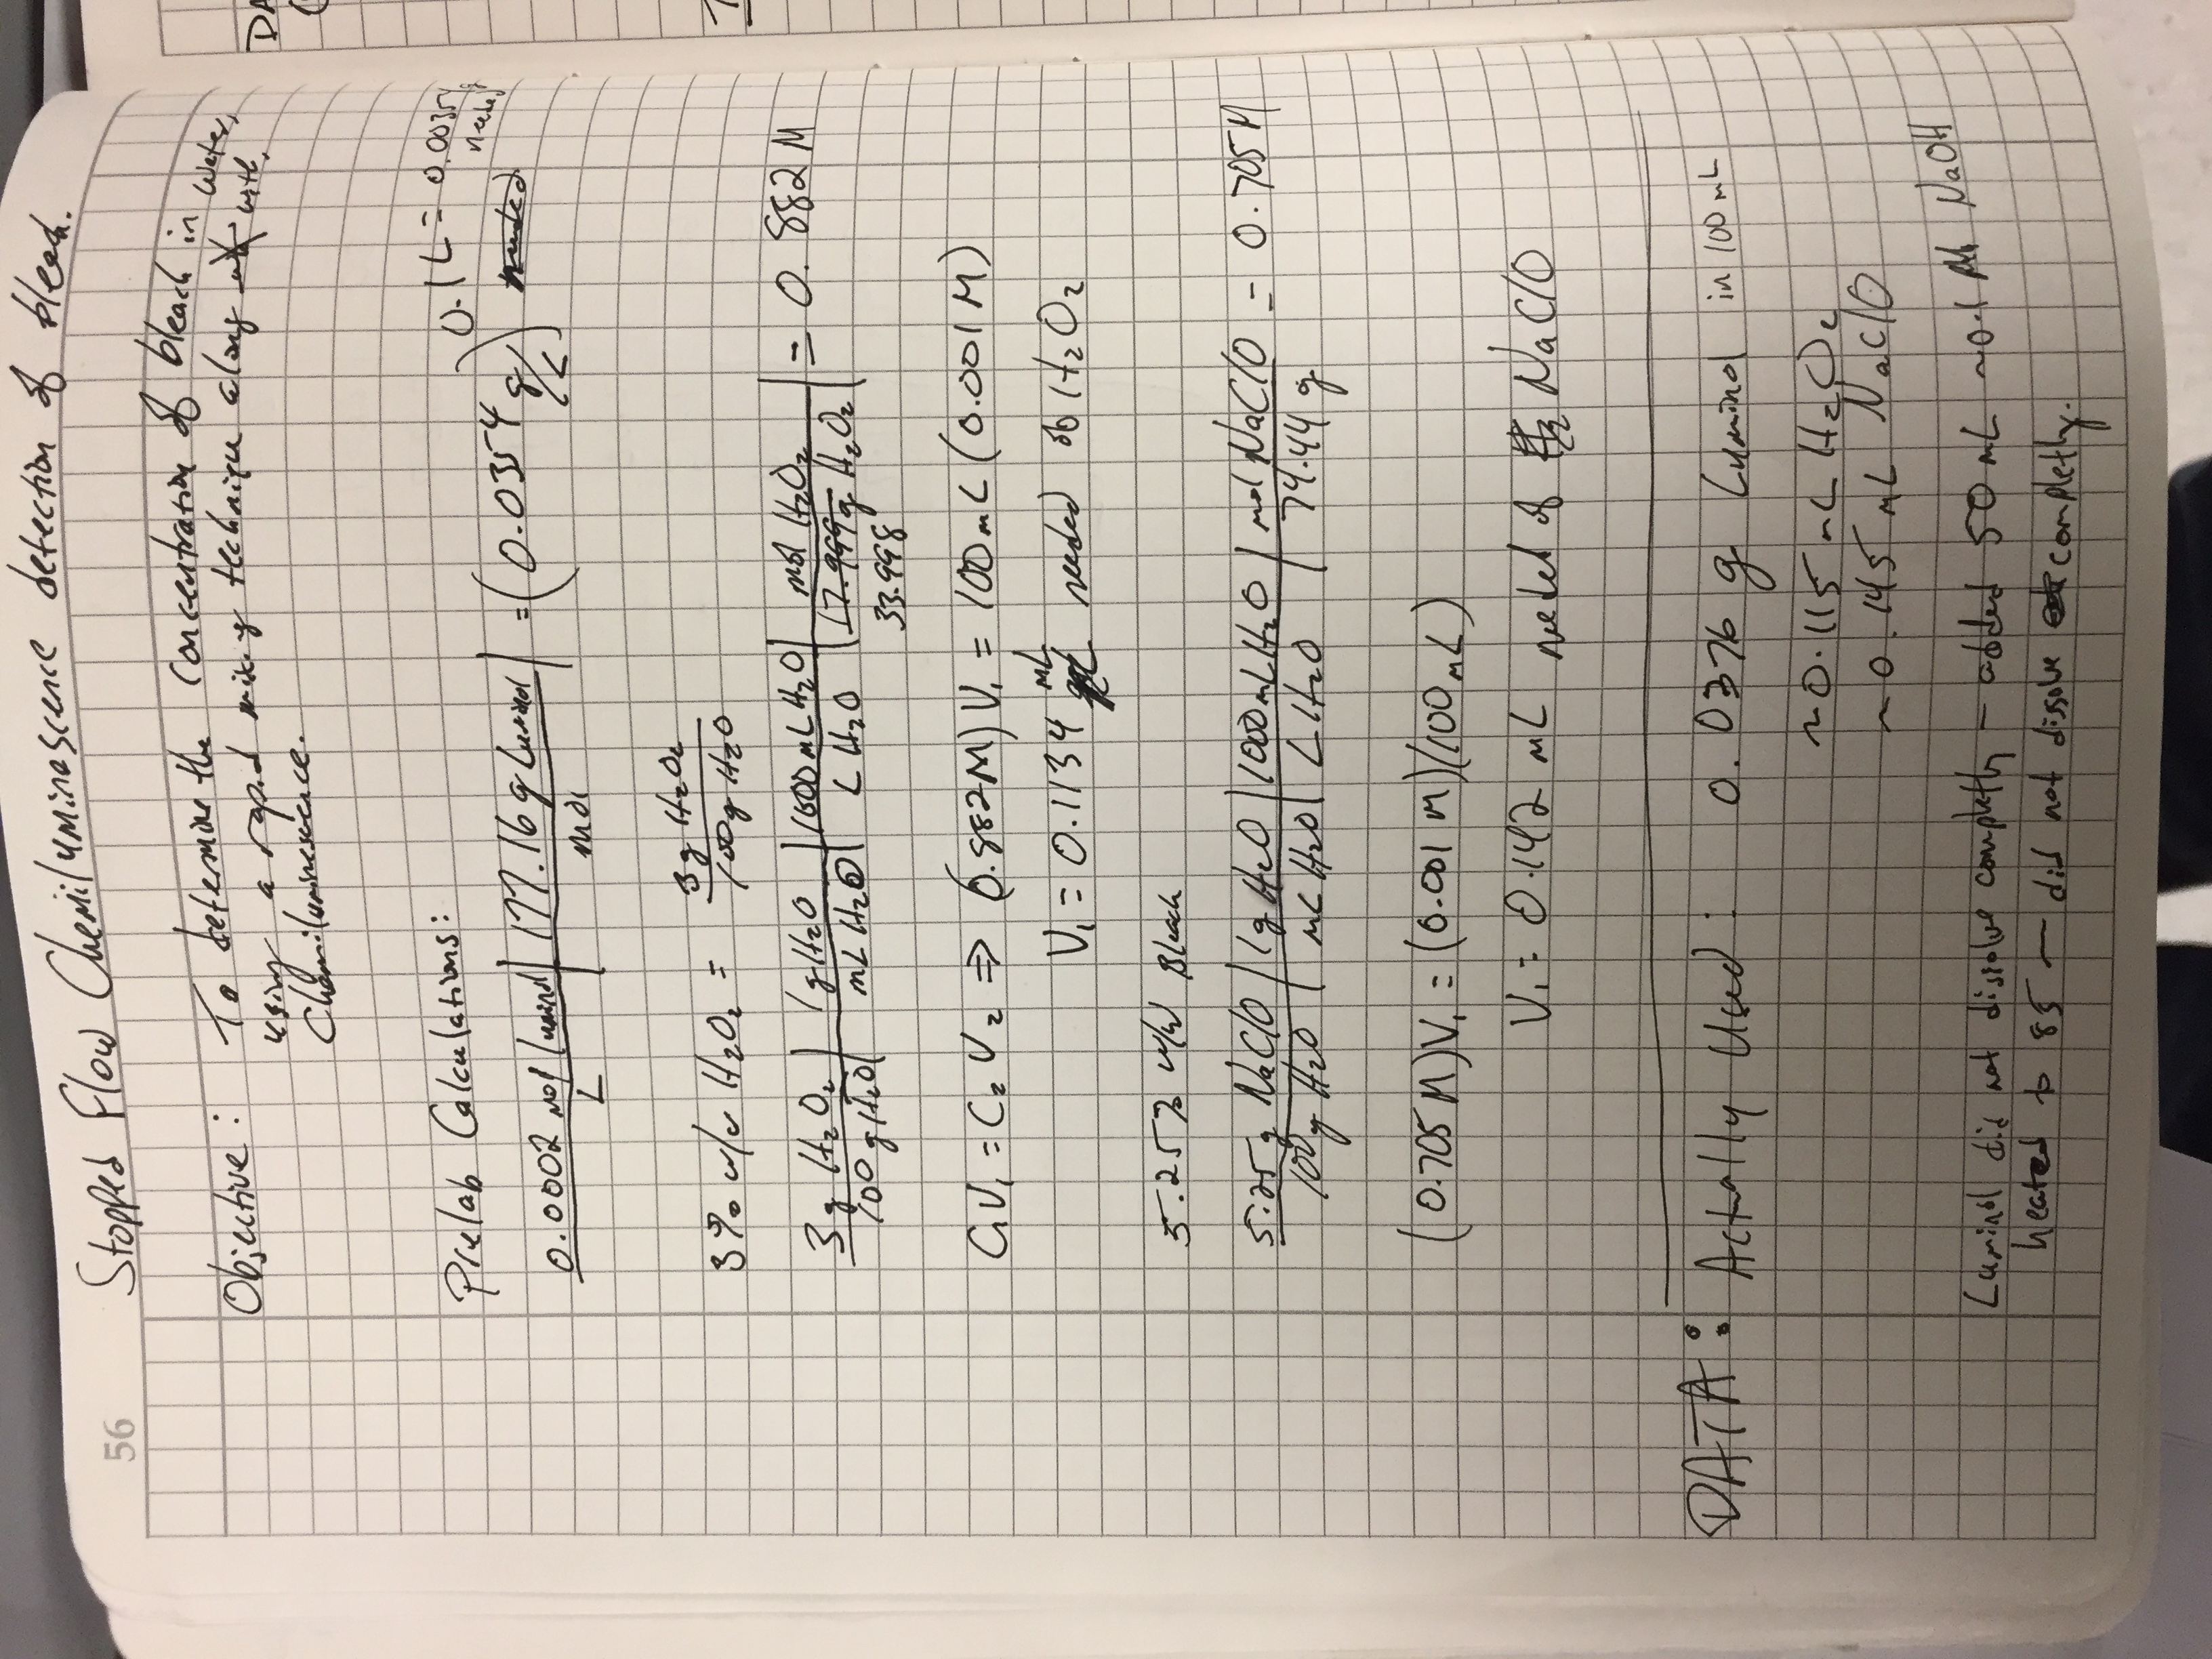 56
Stopped Flow Chemiluminescence detection of bleach.
Objective: To determine the concentration of bleach in water,
using a rapid mixing technique along with
Chemiluminescence.
Prelab Calculations:
0.0002 mol luminol / L | 177.16 g Luminol / mol | = (0.0354 g/L) 0.1 L = 0.00354 g needed
3% w/w H2O2 = 3g H2O2 / 100g H2O
3g H2O2 / 100 g H2O | 1g H2O / mL H2O | 1000 mL H2O / L H2O | mol H2O2 / 17.999g H2O2 | = 0.882 M
33.998
C1V1 = C2V2 ⇒ (0.882M) V1 = 100mL (0.001M)
V1 = 0.1134 mL needed of H2O2
5.25% w/w Bleach
5.25g NaClO / 100g H2O | 1g H2O / mL H2O | 1000 mL H2O / L H2O | mol NaClO / 74.44 g = 0.705M
(0.705M)V1 = (0.001 M)(100mL)
V1 = 0.142 mL needed of NaClO
DATA: Actually Used: 0.0376 g Luminol in 100 mL
~0.115 mL H2O2
~0.145 mL NaClO
Luminol did not dissolve completly - added 50 mL ~0.1 M NaOH
heated to 85 - did not dissolve completly.
DA